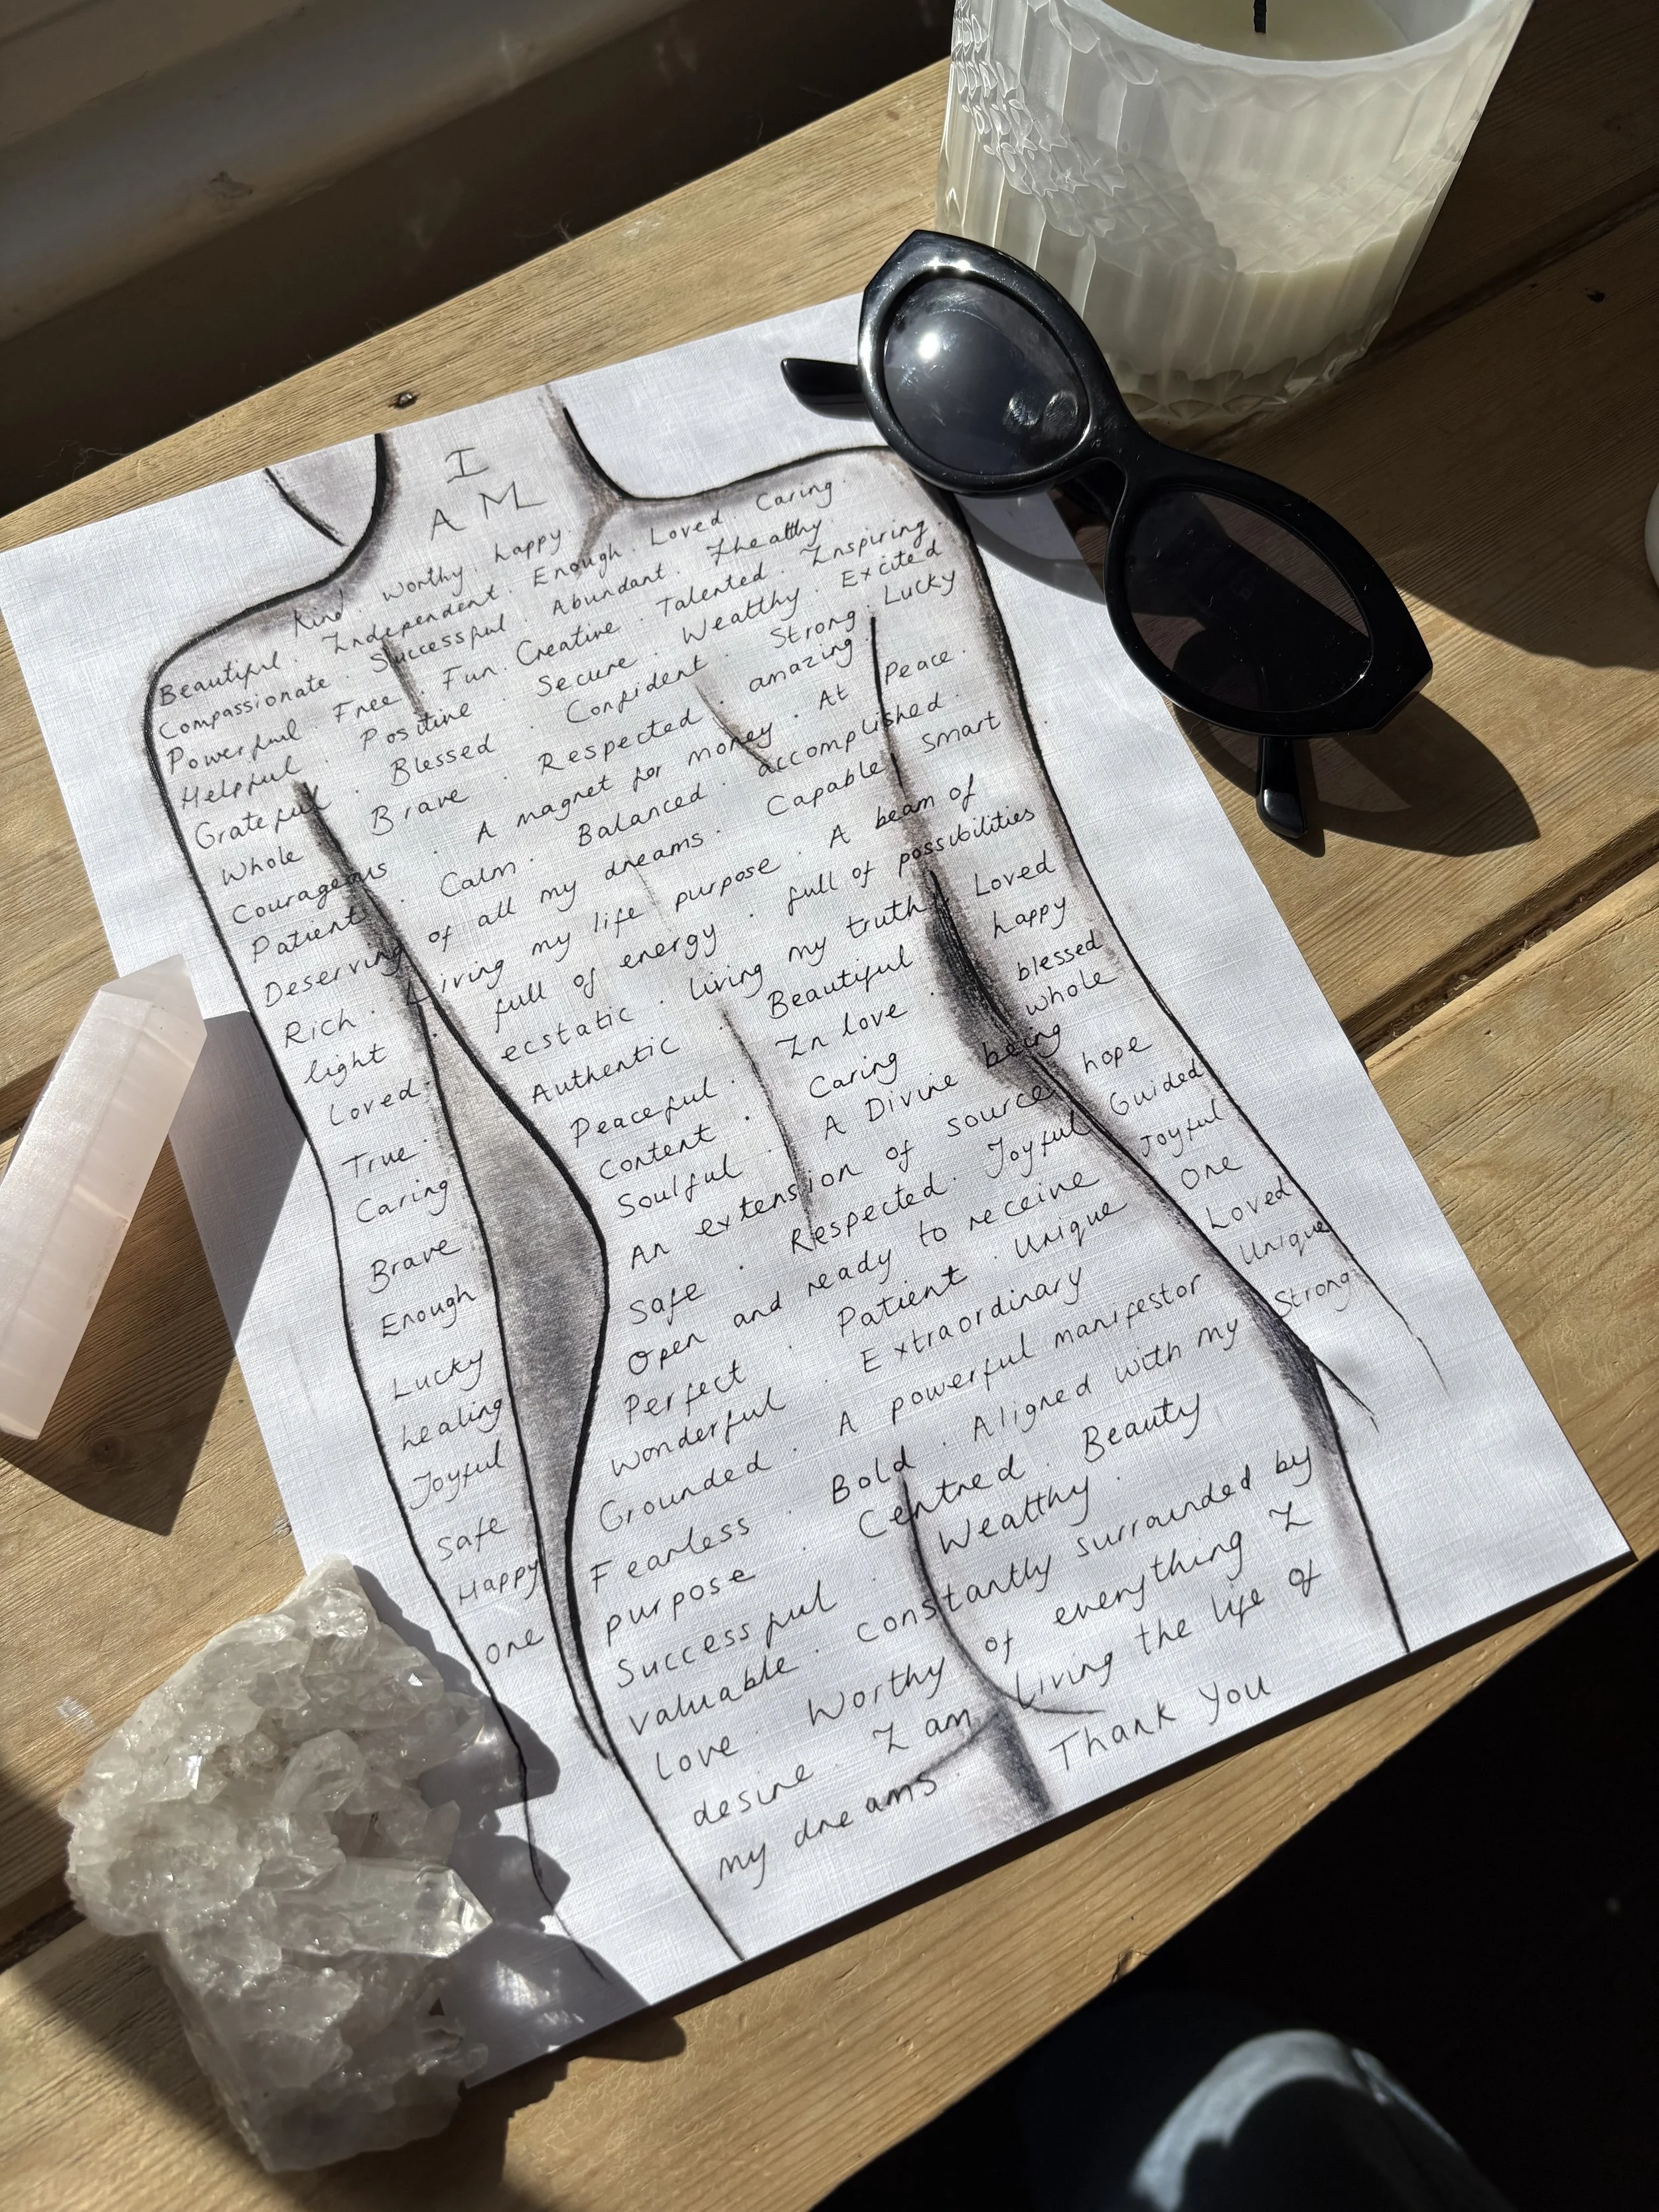 I
AM
Kind. Worthy. happy.
Beautiful. Independent. Enough. Loved. Caring.
Compassionate. Successful. Abundant. Healthy.
Powerful. Free. Fun. Creative. Talented. Inspiring.
Helpful. Positive. Secure. Wealthy. Excited
Grateful. Blessed. Confident. Strong. Lucky
Whole. Brave. Respected. amazing.
Courageous. A magnet for money. At peace.
Patient. Calm. Balanced. accomplished.
Deserving of all my dreams. Capable. Smart
Rich. Living my life purpose. A beam of
light. full of energy. full of possibilities
Loved. ecstatic. living my truth. Loved
True. Authentic. Beautiful happy
Caring Peaceful. In love. blessed
Brave Content. Caring whole
Enough Soulful. A Divine being
Lucky An extension of source hope
healing Safe. Respected. Joyful Guided
Joyful Open and ready to receive Joyful
Safe Perfect. Patient. Unique One
Happy Wonderful. Extraordinary Loved
One Grounded. A powerful manifestor Unique
Fearless. Bold. Aligned with my Strong.
purpose. Centred. Beauty
Successful. Wealthy.
valuable. constantly surrounded by
love. Worthy of everything I
desire. I am living the life of
my dreams. Thank You